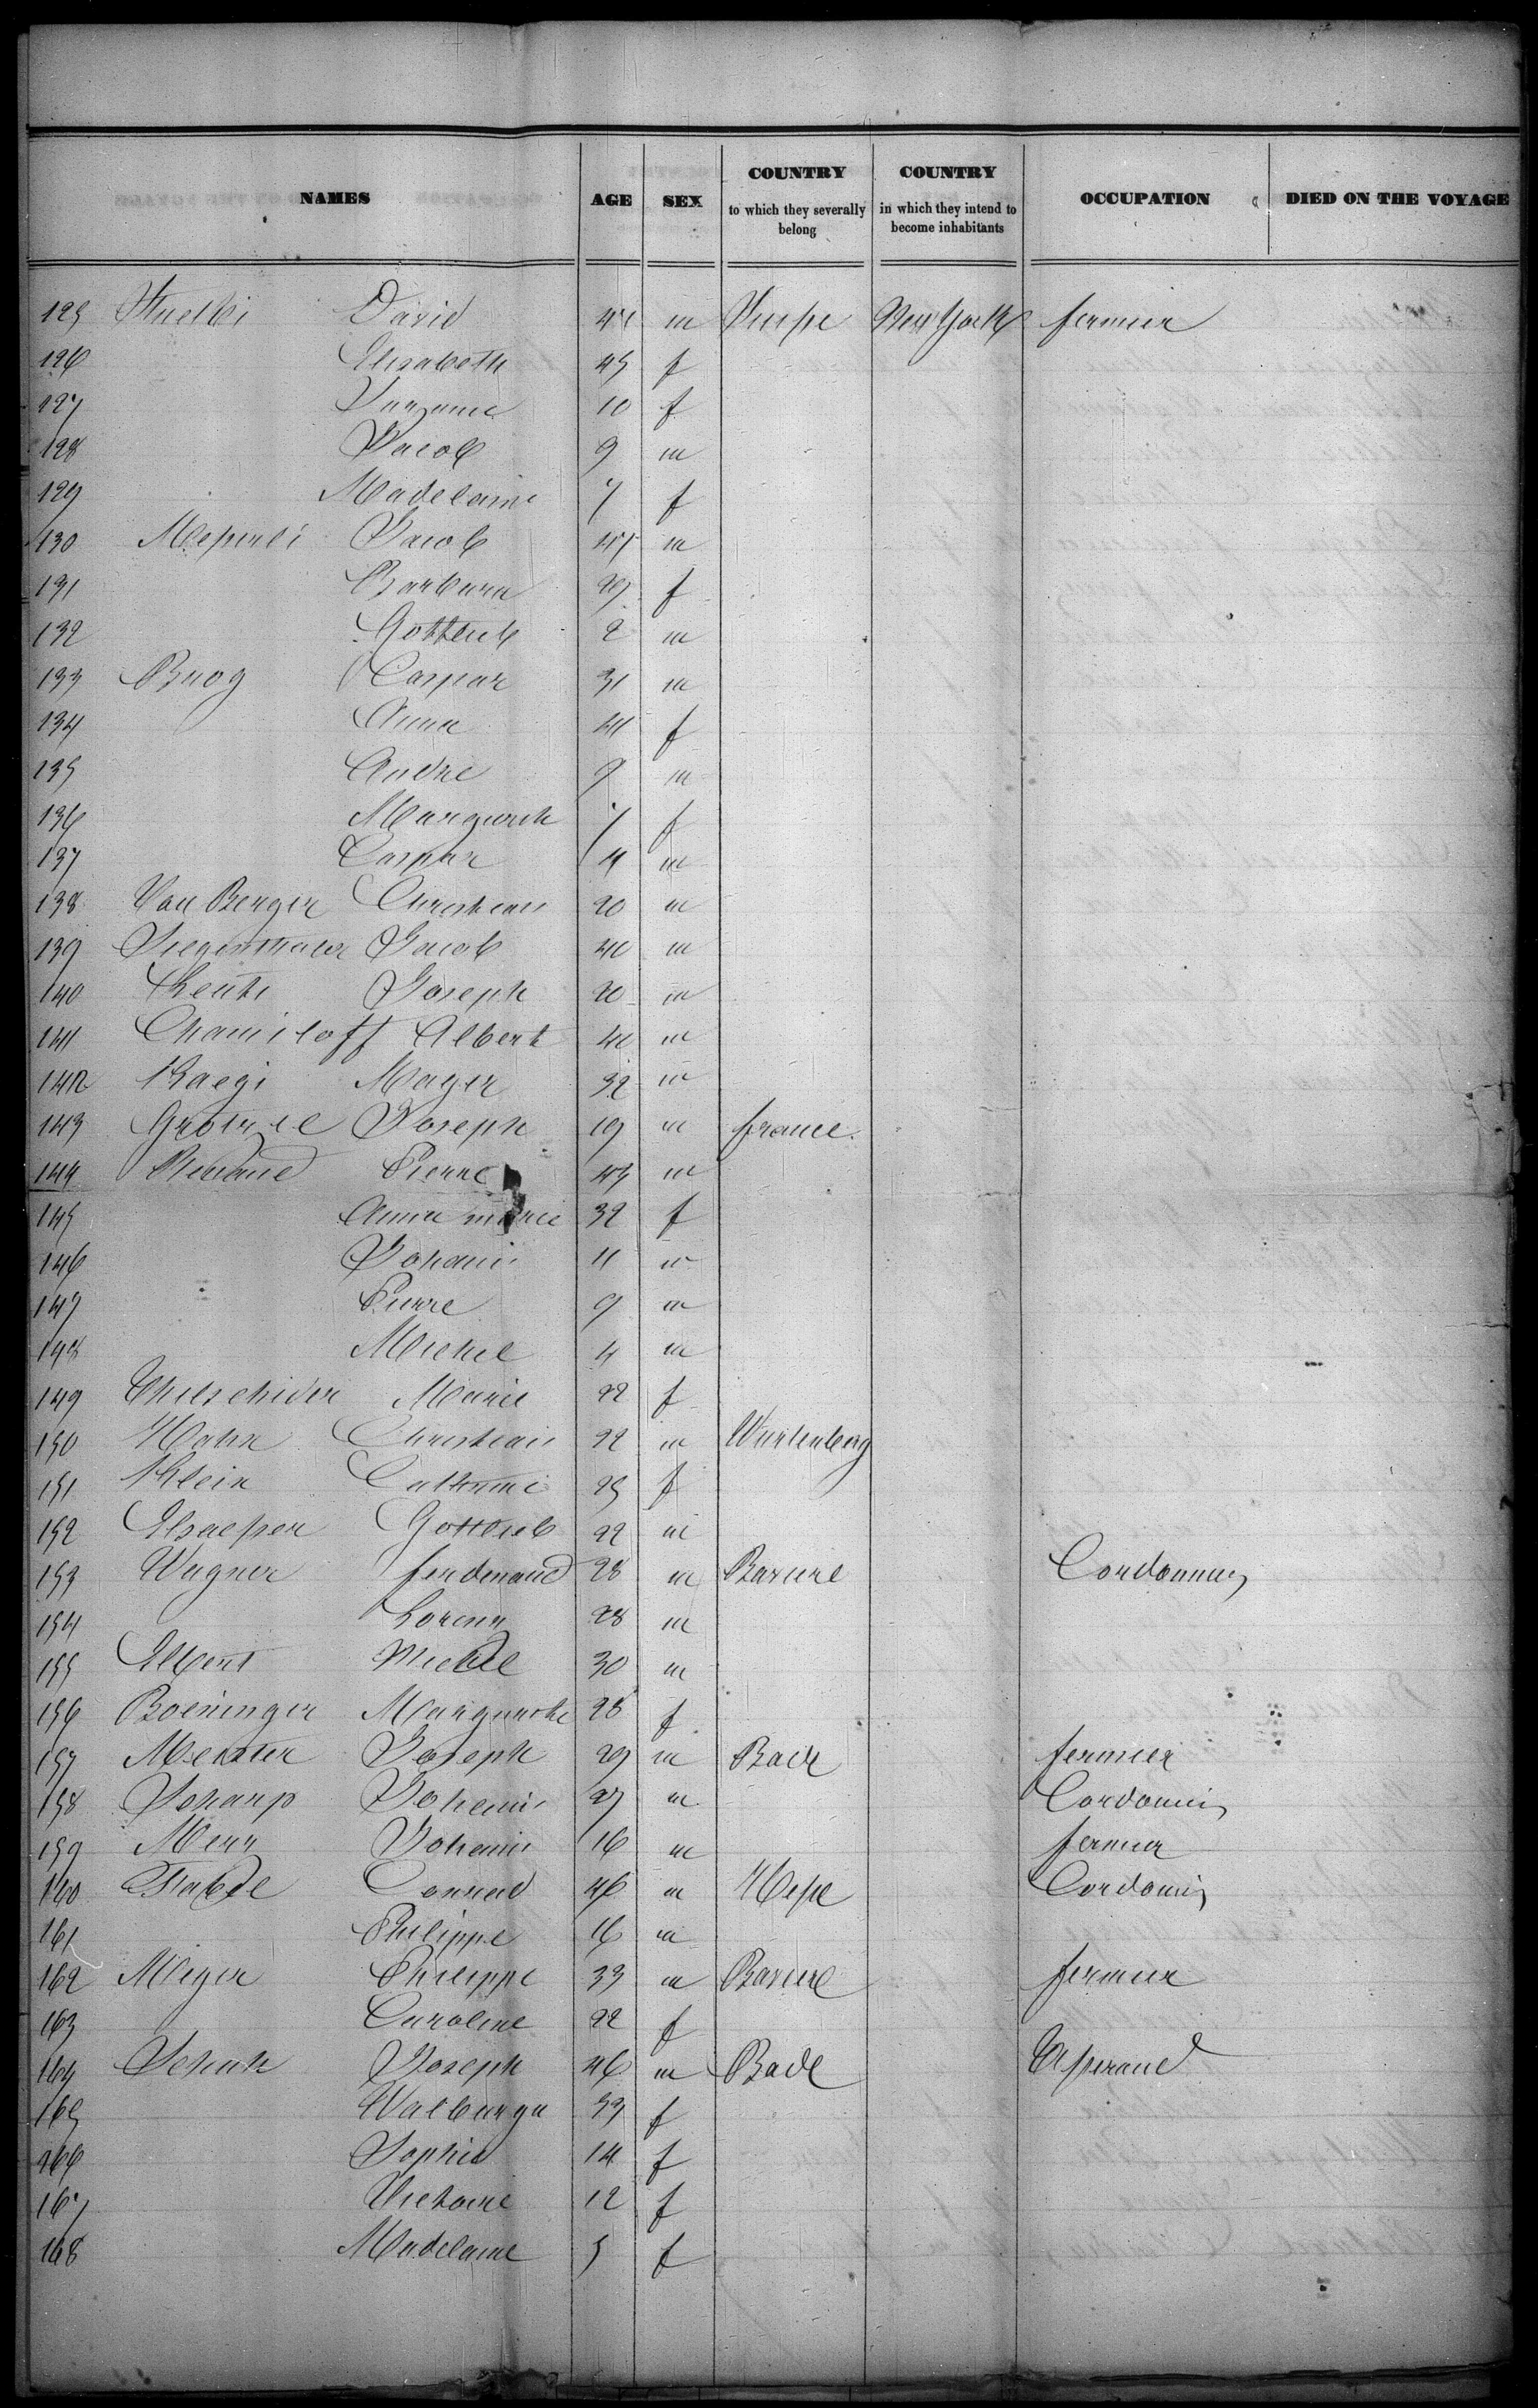 NAMES AGE SEX COUNTRY to which they severally belong COUNTRY in which they intend to become inhabitants OCCUPATION DIED ON THE VOYAGE
125 David m New York fermier
126 Elisabeth 45 f
127 Suzanne 10 f
128 Jacob 9 m
129 Madelaine 7 f
130 Jacob m
131 Barbara 29 f
132 Gottlieb 2 m
133 Buog Caspar 31 m
134 Anna 41 f
135 André 9 m
136 Marguerite 7 f
137 Caspar 4 m
138 Van Berger Christian 20 m
139 Siegenthaler Jacob 40 m
140 Joseph 20 m
141 Albert m
142 Kaegi Mayer 32 m
143 Joseph 19 m france
144 Pierre 45 m
145 Anna marie 32 f
146 Johann 11 m
147 Pierre 9 m
148 Michel 4 m
149 Marie 22 f
150 Hahn Christian 22 m Wurtenberg
151 Klein Catherine 25 f
152 Gottlieb 22 m
153 Wagner ferdinand 28 m Baviere Cordonnier
154 Lorenz 28 m
155 Elbert Michel 30 m
156 Boeninger Marguerite 28 f
157 Joseph 29 m Bade fermier
158 Scharp Johann 27 m Cordonnier
159 Merz Johann 16 m fermier
160 Conrad 46 m Hesse Cordonnier
161 Philippe 16 m
162 Meyer Philippe 33 m Baviere fermier
163 Caroline 22 f
164 Joseph 46 m Bade
165 Walburga 33 f
166 Sophie 14 f
167 Victoire 12 f
168 Madelaine 5 f